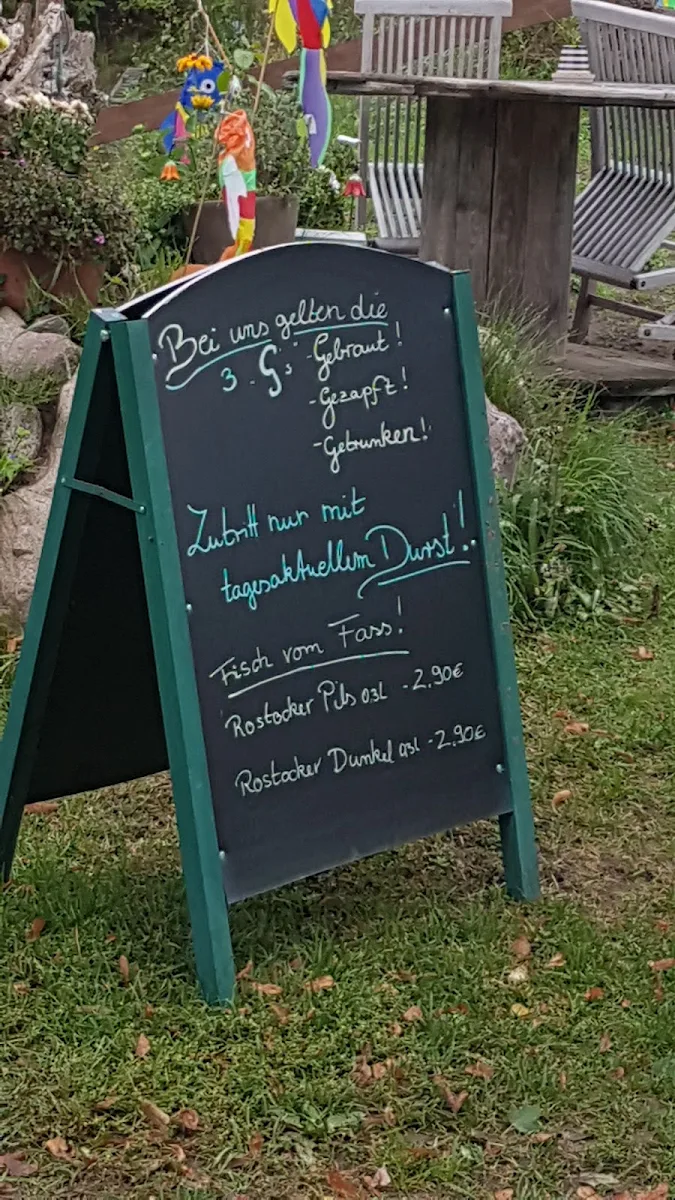 Bei uns gelten die
3 - G's - Gebraut!
- Gezapft!
- Getrunken!
Zutritt nur mit
tagesaktuellem Durst!
Fisch vom Fass!
Rostocker Pils 0,3L - 2,90€
Rostocker Dunkel 0,3L - 2,90€